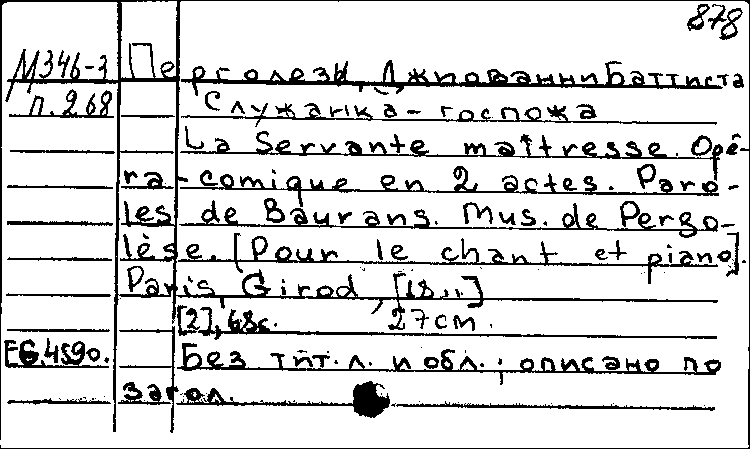 878
М346-3 Перголези, Джиованни Баттиста
п.268 Служанка-госпожа
La Servante maîtresse. Opé-
ra-comique en 2 actes. Paro-
les de Baurans. Mus. de Pergo-
lèse. [Pour le chant et piano].
Paris, Girod, [18..]
[2], 68с. 27см.
Без тит.л. и обл.; описано по
загол.